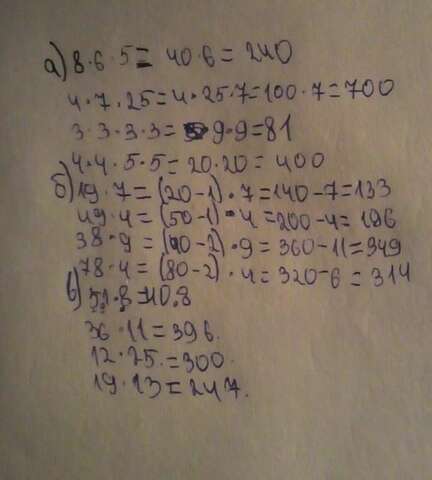 а) 8·6·5= 40·6= 240
4·7·25=4·25·7=100·7=700
3·3·3·3= 9·9=81
4·4·5·5=20·20=400
б) 19·7=(20-1)·7=140-7=133
49·4=(50-1)·4=200-4=196
38·9=(40-2)·9=360-11=349
78·4=(80-2)·4=320-6=314
в)
36·11=396.
12·25.=300.
19·13=247.